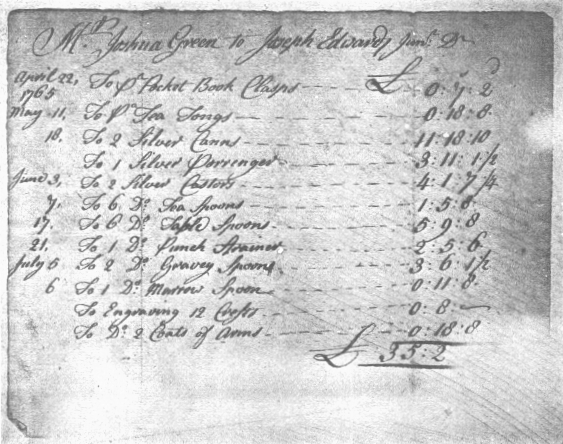 Mr. Joshua Green to Joseph Edwards Junr. Dr
April 22, 1765 To Pr Pocket Book Clasps £ 0:7:2
May 11, To Pr Tea Tongs 0:18:8
18, To 2 Silver Canns 11:18:10
To 1 Silver Porrenger 3:11:1½
June 3, To 2 Silver Castors 4:1:7¼
7, To 6 Do Tea Spoons 1:5:8
17, To 6 Do Table Spoons 5:9:8
21, To 1 Do Punch Strainer 2:5:6
July 5 To 2 Do Gravey Spoons 3:6:1½
6 To 1 Do Marrow Spoon 0:11:8
To Engraving 12 Crests 0:8
To Do 2 Coats of Arms 0:18:8
£ 35:2